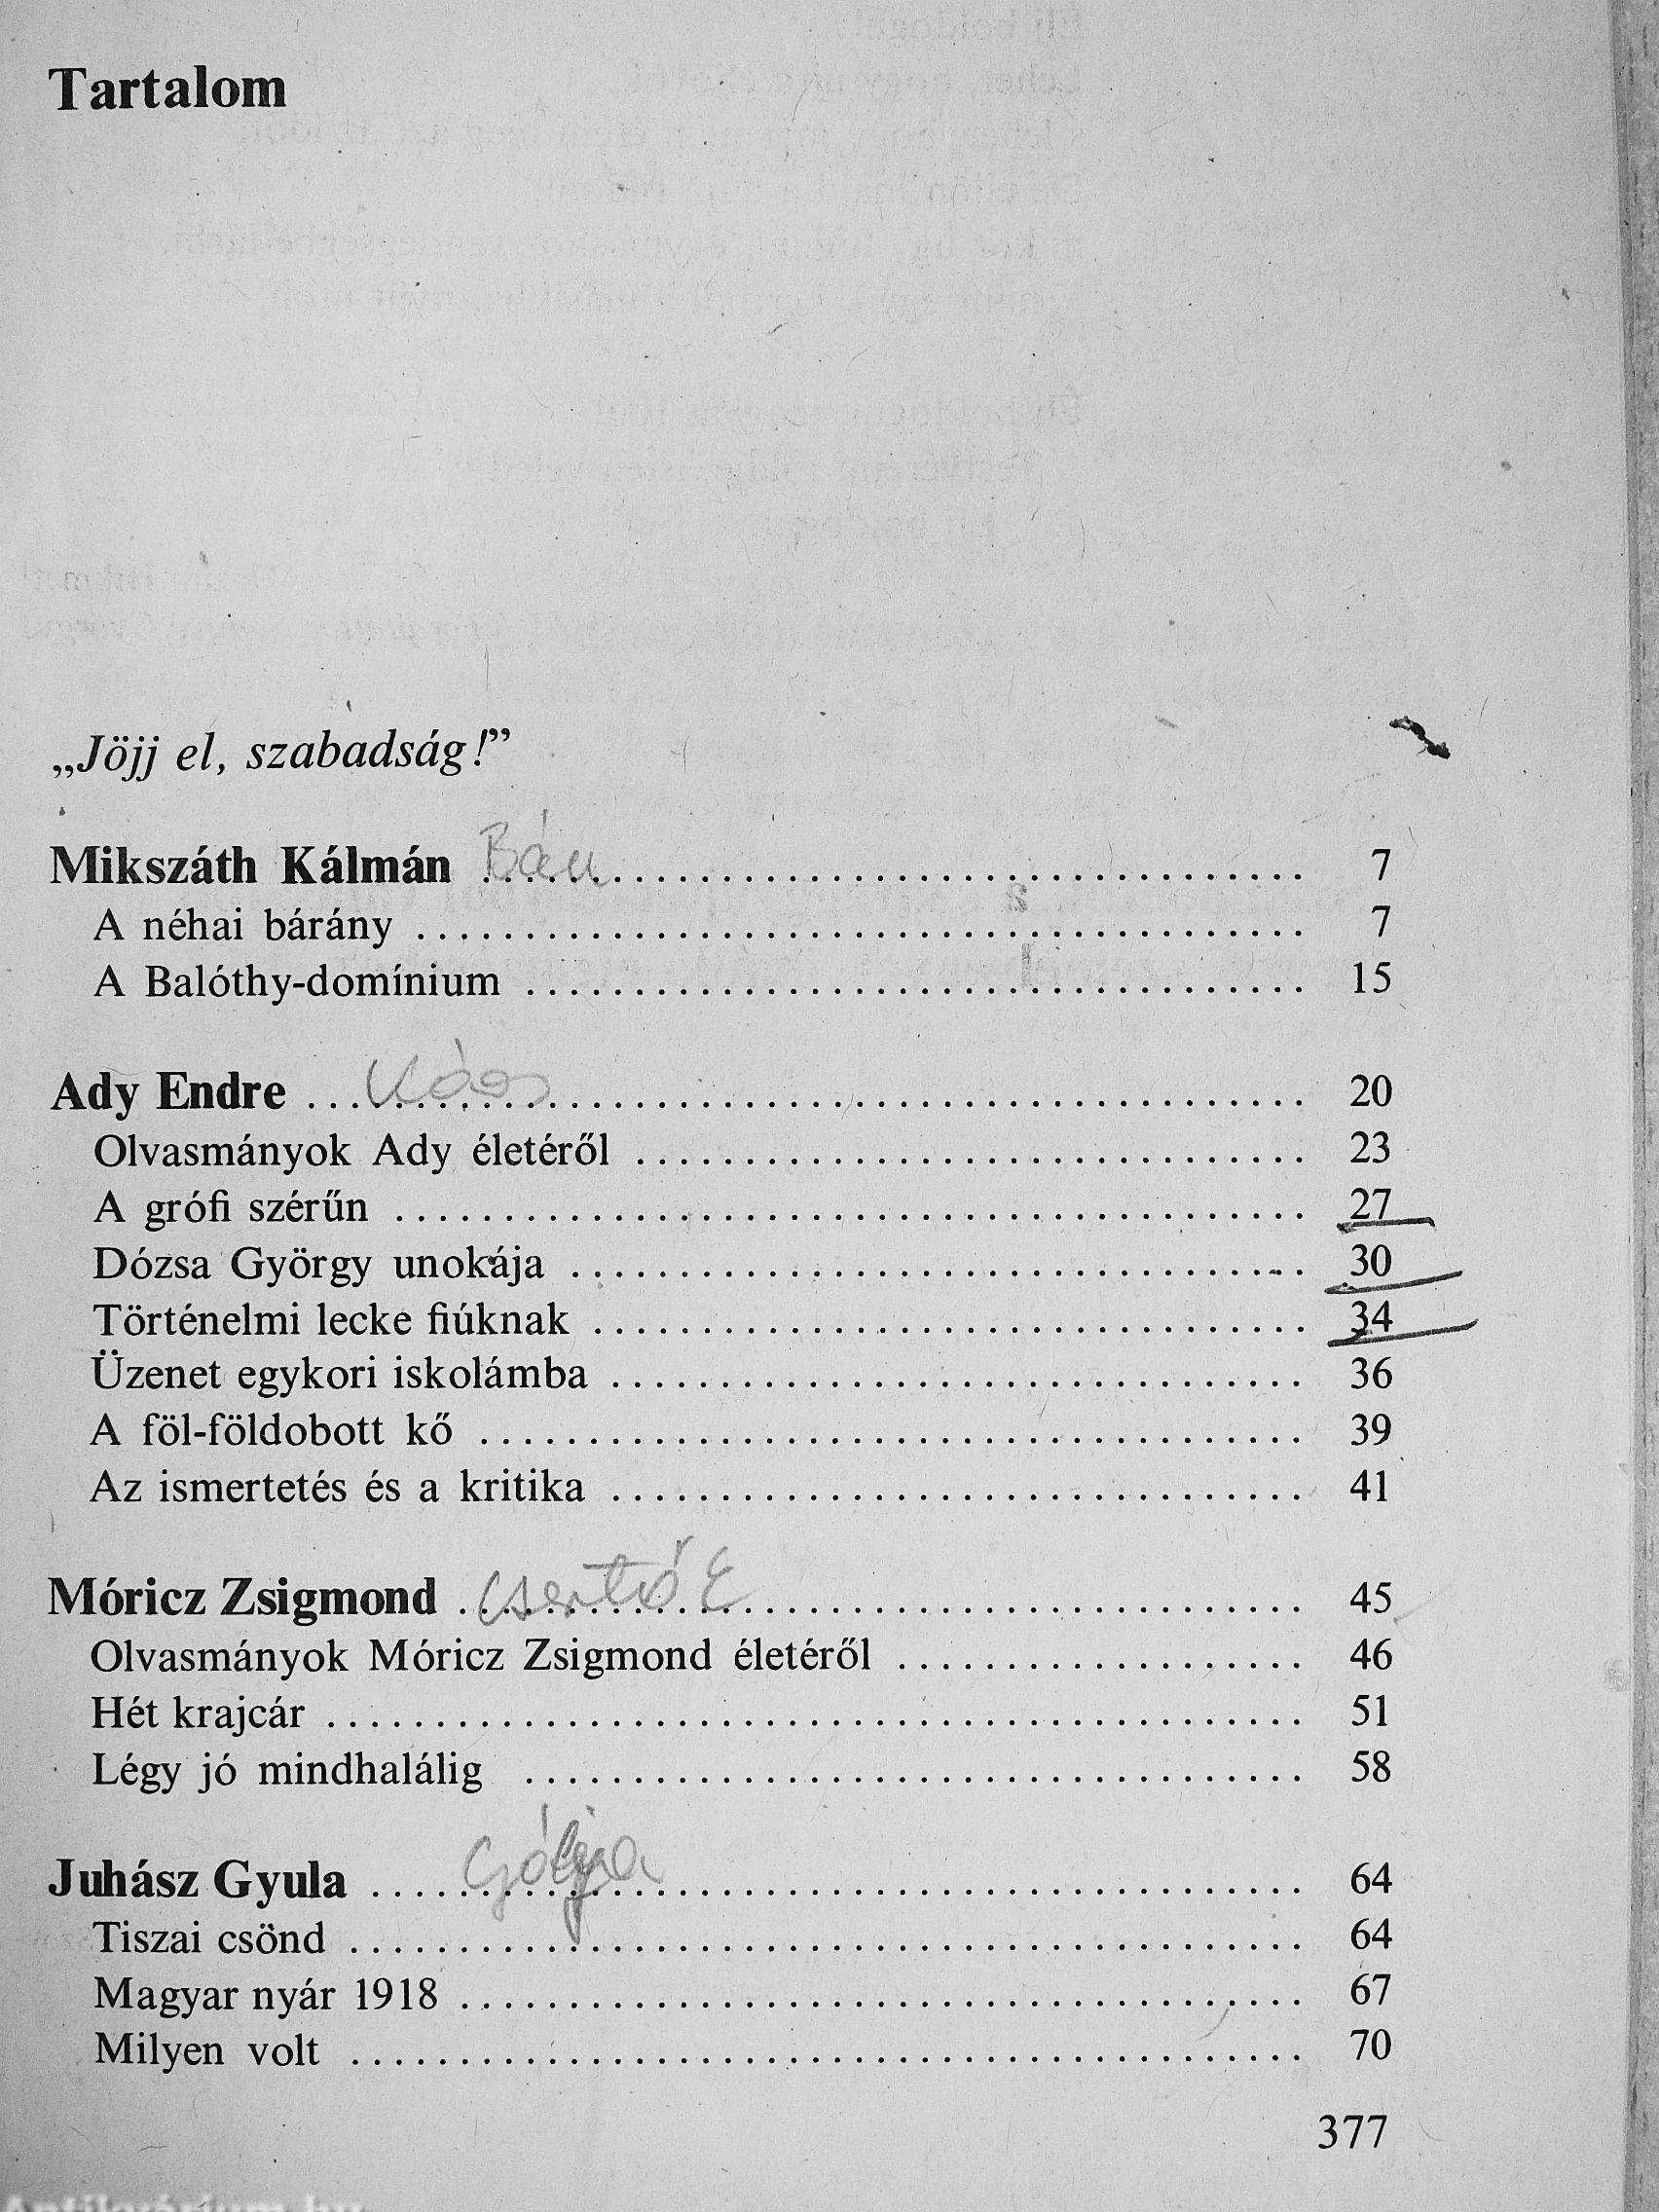 Tartalom
„Jöjj el, szabadság!”
Mikszáth Kálmán Bán ........ 7
A néhai bárány ........ 7
A Balóthy-domínium ........ 15
Ady Endre ........ 20
Olvasmányok Ady életéről ........ 23
A grófi szérűn ........ 27
Dózsa György unokája ........ 30
Történelmi lecke fiúknak ........ 34
Üzenet egykori iskolámba ........ 36
A föl-földobott kő ........ 39
Az ismertetés és a kritika ........ 41
Móricz Zsigmond ........ 45
Olvasmányok Móricz Zsigmond életéről ........ 46
Hét krajcár ........ 51
Légy jó mindhalálig ........ 58
Juhász Gyula ........ 64
Tiszai csönd ........ 64
Magyar nyár 1918 ........ 67
Milyen volt ........ 70
377
Antikvárium.hu